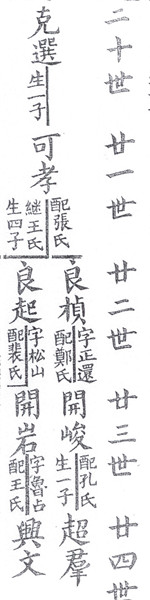 二十世
廿一世
廿二世
廿三世
廿四世
克選
生一子
可孝
配張氏
繼王氏
生四子
良楨
字正還
配鄭氏
開峻
配孔氏
生一子
超羣
良起
字松山
配裴氏
開岩
字魯占
配王氏
興文